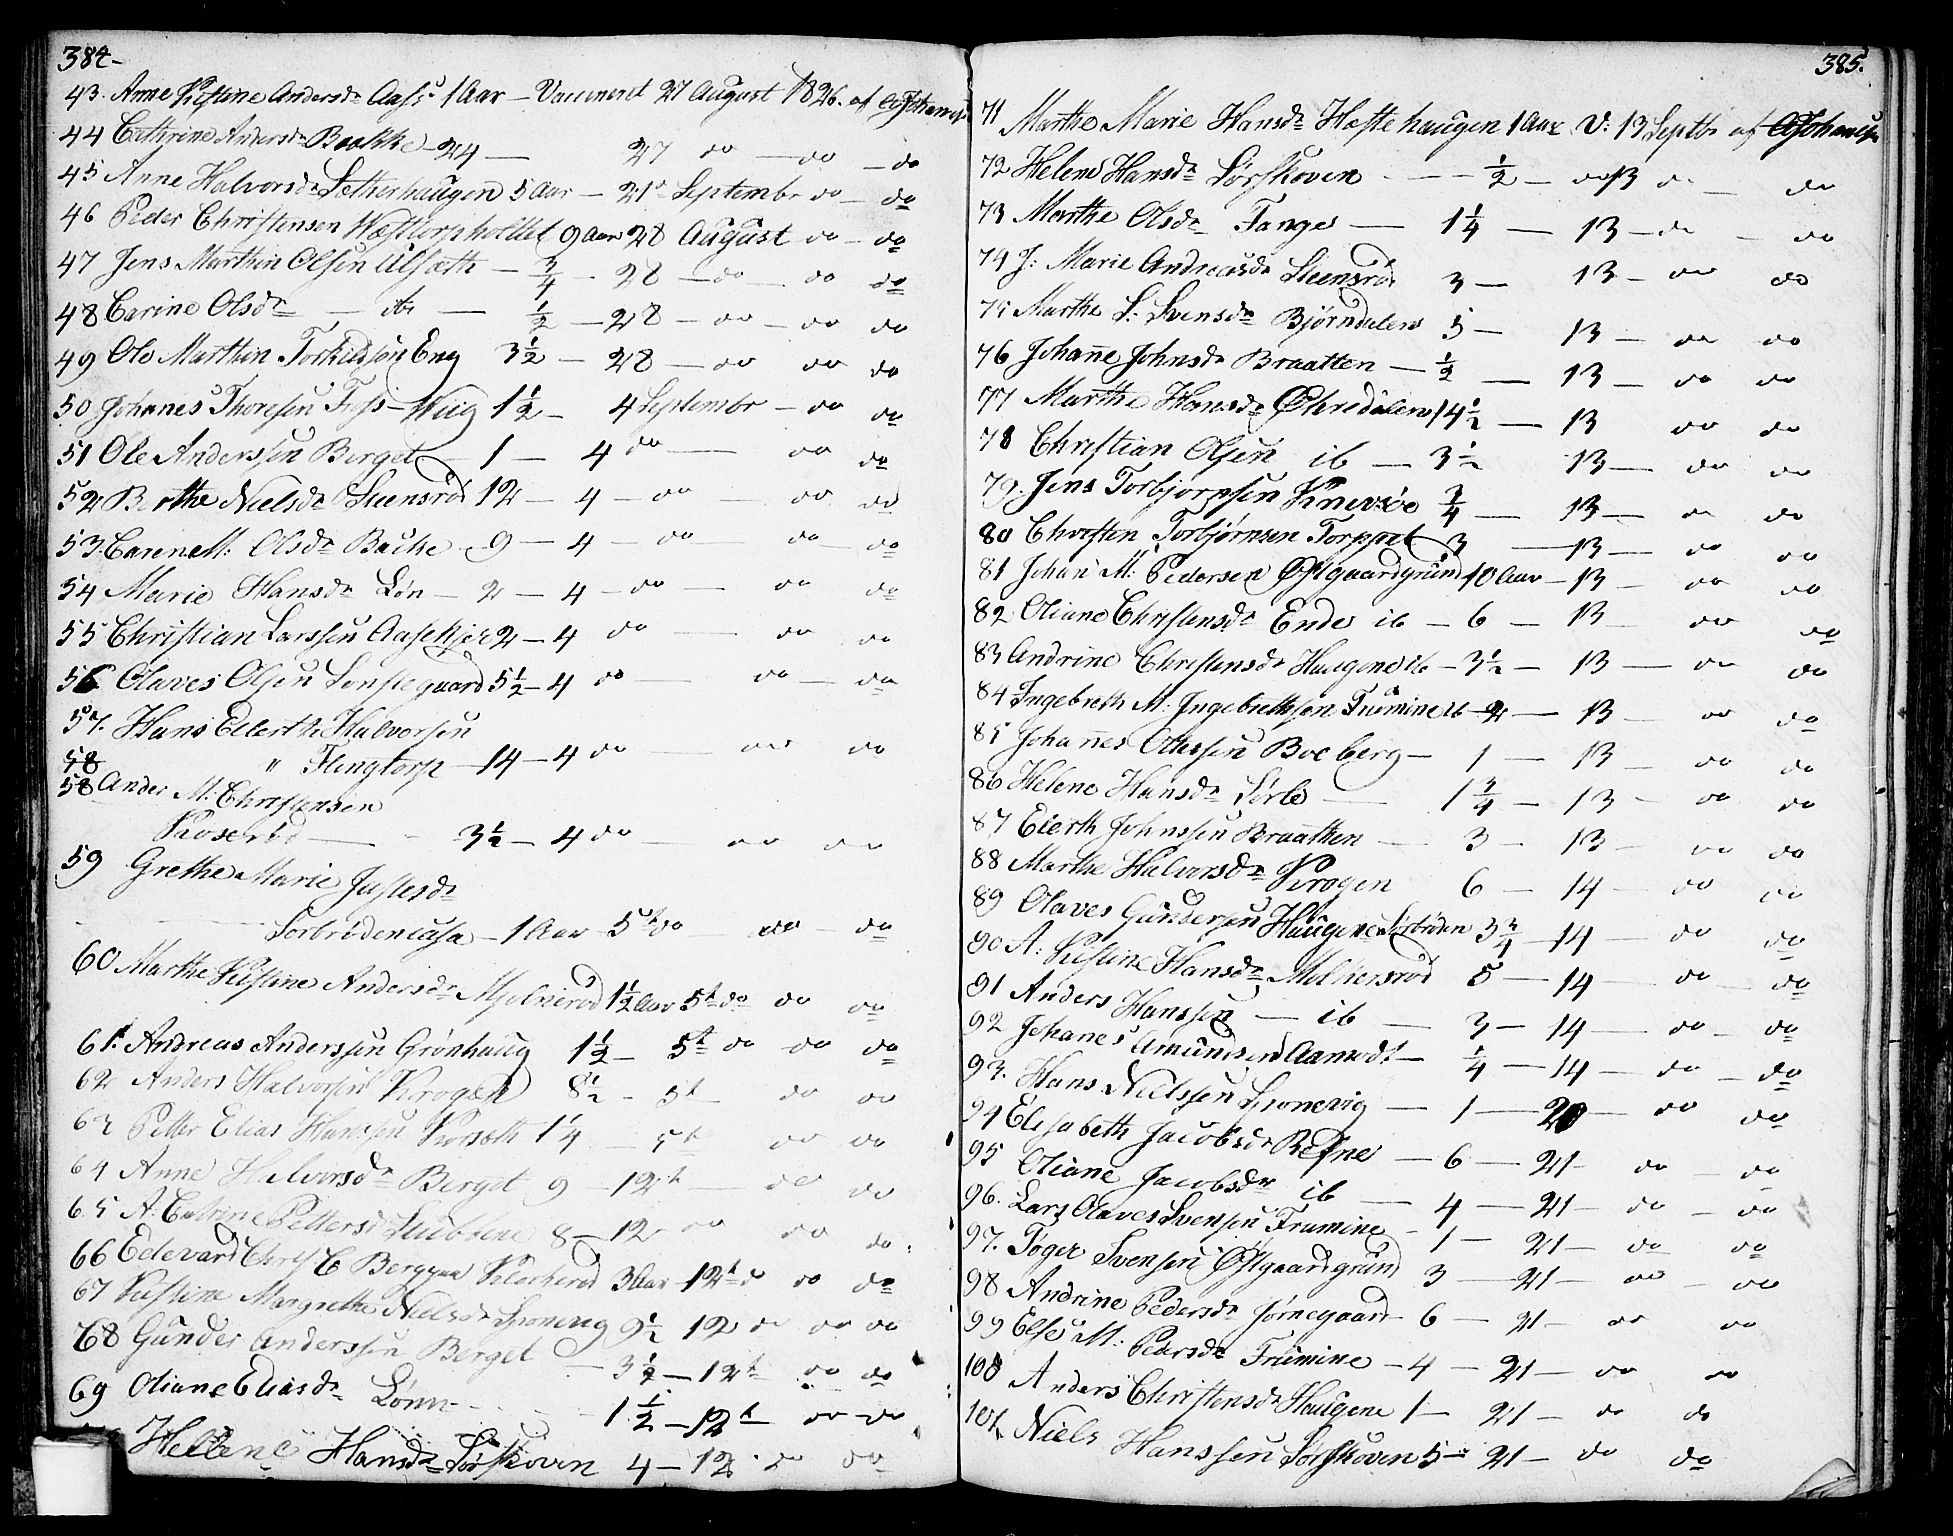 384-
43. Anne Kistine Andersdr Aass 1 Aar — Vaccineret 27 August 1826. af
44 Cathrine Andersdr Baakke — 24 — 27 do — do — do
45 Anne Halvorsdr Setherhaugen 5 Aar — 21 Septembr do — do
46 Peder Christensen Wæstorphollet 9 Aar 28 August do — do
47 Jens Marthin Olsen Ulsæth — 3/4 — 28 — do — do do
48 Carine Olsdr — do — 1/2 — 28 — do — do do
49 Ole Marthin Torkildsøn Eng 3 1/2 — 28 — do do do
50 Johanes Thoresen Foss-Wiig 1 1/2 — 4 Septembr — do do
51 Ole Anderssen Berget — 1 — 4 do — do do
52 Berthe Nielsdr Steensrød 12 — 4 — do — do do
53. Caren M: Olsdr Bakke — 9 — 4 — do — do — do
54 Marie Hansdr Løn — 2 — 4 — do — do do
55 Christian Larssen Aasekjer 2 — 4 do — do do
56 Olaves Olsen Tønstegaard 5 1/2 — 4 do — do — do
57. Hans Ellerth Halvorsen
58 " Flingtorp — 14 — 4 do — do do
58 Ander M: Christensen
Koserød — 3 1/2 — 4 do — do do
59 Grethe Marie Justesdr
Sorbrødencasa — 1 Aar — 5t do — do — do
60 Marthe Kistine Andersdr Mjølnerød 1 1/2 Aar 5t do do do
61. Andreas Anderssen Grønhaug 1 1/2 — 5t do do do
62 Anders Halvorsen Krogen 8 1/2 — 5t — do do
63 Petter Elias Hanssen Korsæth 1 1/4 — 5t — do do
64 Anne Halvorsdr Berget 9 — 12t — do do
65 A: Catrine Pettersd Stubbene 8 — 12 do do do
66 Edevard Christ C Berggren Kilerød 3 Aar — 12t do do do
67 Kistine Margrethe Nielsdr Gronevig 9 1/2 12 do do do
68 Gunder Anderssen Berget — 3 1/2 — 12t do do
69 Oliane Eliasdr Lønn — 1 1/2 — 12t do do
Hellene Hansdr Sørskoven 4 — 12 do do
385.
71 Marthe Marie Hansdr Hæstehaugen 1 Aar V: 13 Septbr af
72 Helene Hansdr Sørskoven — 1/2 — do 13 do — do
73 Marthe Olsdr Tange — 1 1/4 — 13 — do — do
74 J: Marie Andreasdr Steensrød 3 — 13 — do do
75 Marthe S: Svensdr Bjørndalen 5 — 13 — do do
76 Johanne Johnsdr Braatten — 1/2 — 13 — do do
77 Marthe Hansdr Øhredalen 14 1/2 — 13 do do
78 Christian Olsen ib — 3 1/2 13 — do do
79. Jens Torbjornsen Knivsøe 3/4 — 13 — do do
80 Christen Torbjørnsen Torppet 3 — 13 — do do
81 Johan M: Pedersen Østgaardgrund 10 Aar — 13 — do do
82 Oliane Christensdr Ende ib — 6 — 13 — do do
83 Andrine Christensdr Haugene ib — 3 1/2 — 13 — do do
84 Ingebreth M: Ingebrethsen Trumine ib — 2 — 13 — do do
85 Johannes Olessen Bocberg — 1 — 13 — do do
86 Helene Hansdr Sørle — 1 3/4 — 13 — do do
87 Elerth Johnssen Braatten — 3 — 13 — do do
88 Marthe Halvorsdr Krogen 6 — 14 — do do
89 Olaves Gundersen Haugene Sørbrøden 3 3/4 — 14 — do do
90 A: Kistine Hansdr Mølnersrød 5 — 14 — do do
91 Anders Hanssen — ib — 3 — 14 — do — do
92 Johanes Amundsen Aamodt — 1/4 — 14 — do — do
93. Hans Nielssen Gronevig — 1 — 20 — do do
94 Elisabeth Jacobsdr Refne — 6 — 21 — do — do
95 Oliane Jacobsdr ib — 4 — 21 — do — do
96. Lars Olaves Svensen Trumine — 1 — 21 — do — do
97. Tøger Svensen Østgaardgrund 3 — 21 — do — do
98 Andrine Pedersdr Jørnegaard — 6 — 21 — do do
99 Else M: Pedrsdr Trumine — 4 — 21 — do do
100 Anders Christensdr Haugene 1 — 21 — do do
101 Niels Hanssen Sørskoven 5 — 21 — do do